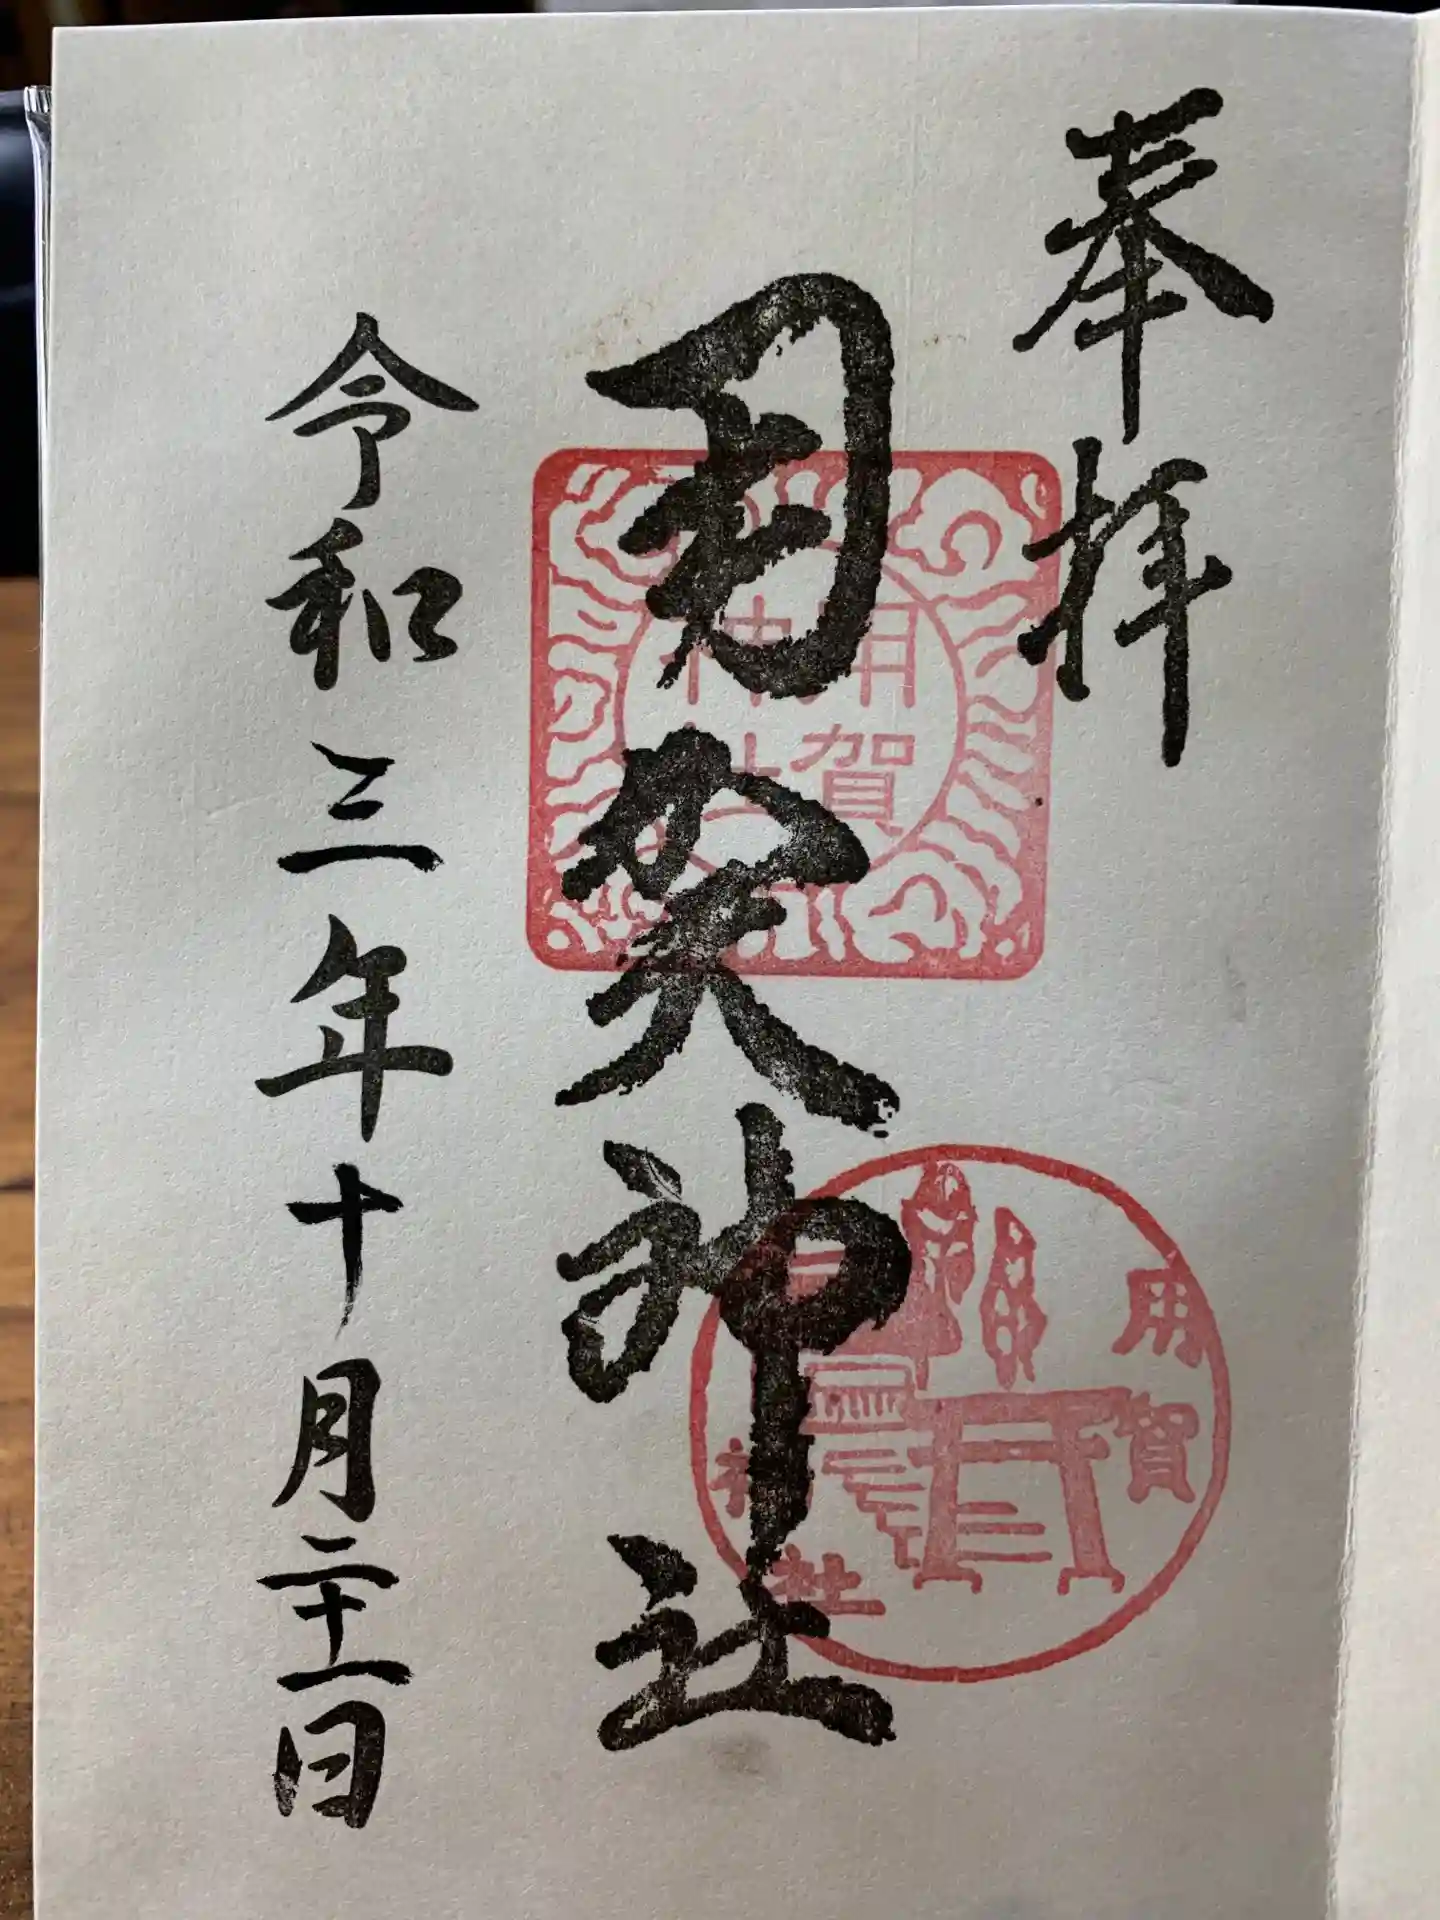 奉拝
用賀神社
用賀
神社
用賀
神社
令和三年十月二十一日